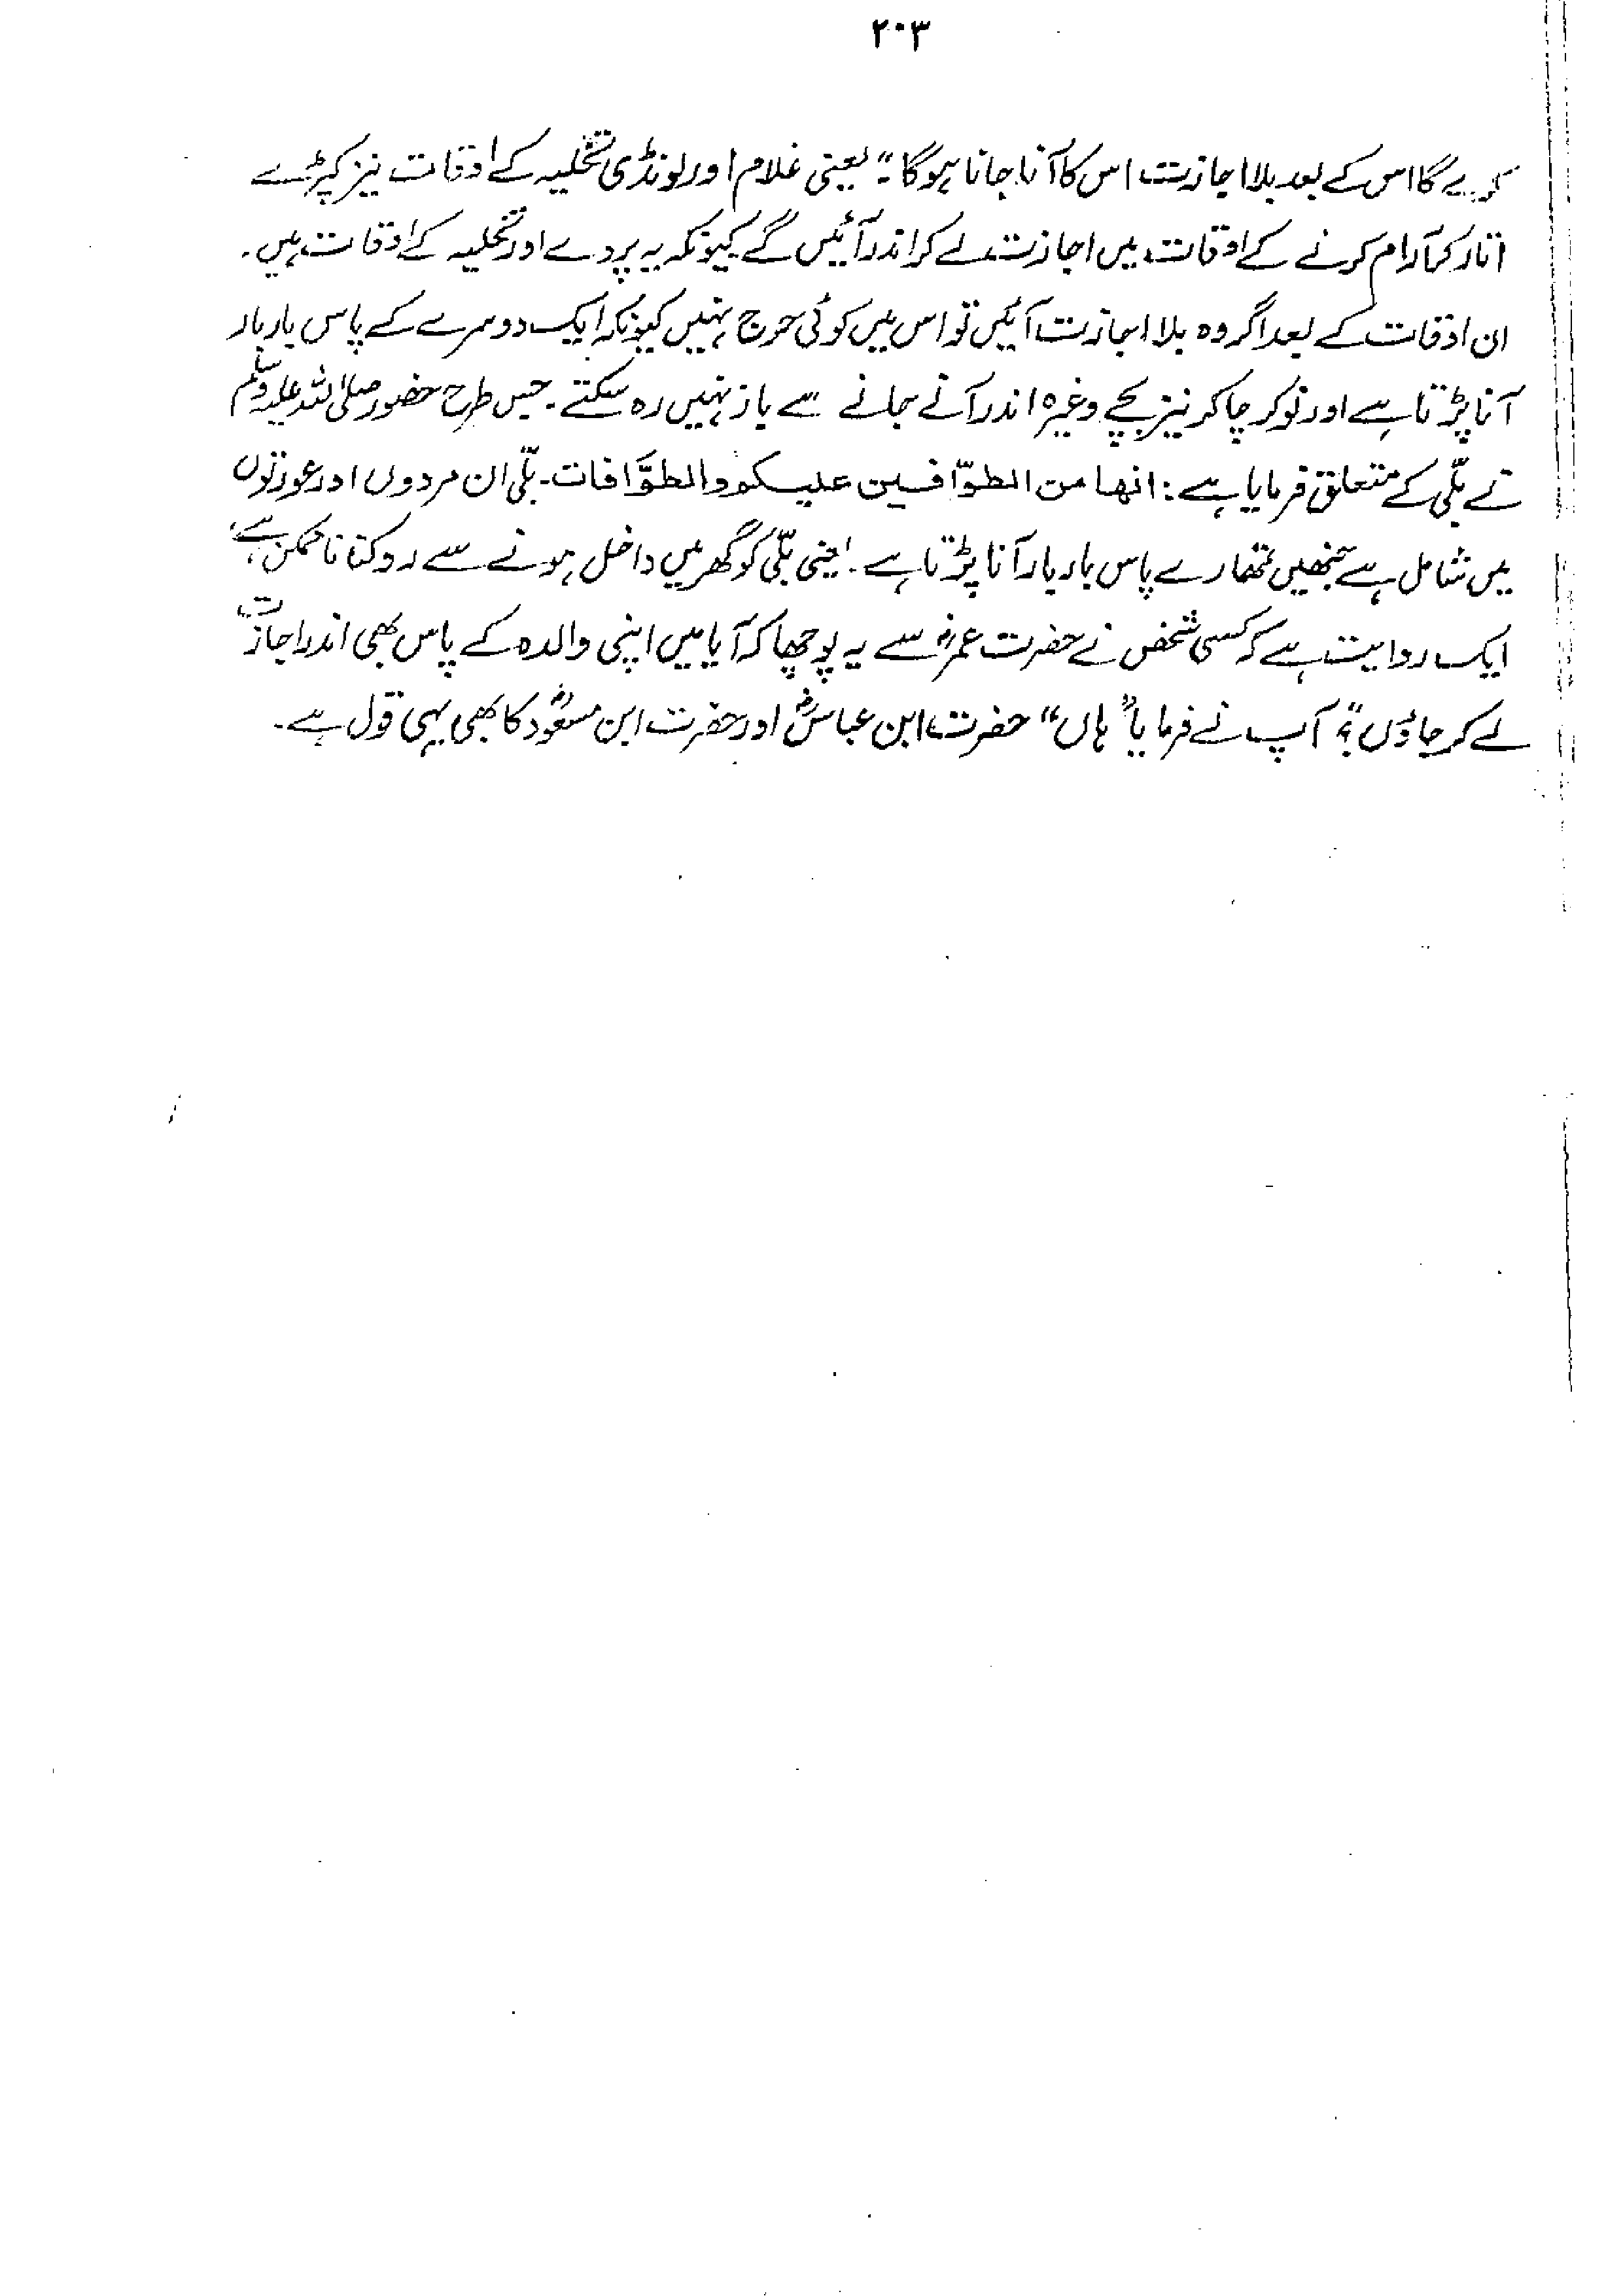 ۲۰۳
کرے گا اس کے بعد بلا اجازت اس کا آنا جانا ہو گا۔" یعنی غلام اور لونڈی تخلیہ کے اوقات نیز کپڑے
اتار کر آرام کرنے کے اوقات میں اجازت لے کر اندر آئیں گے کیونکہ یہ پردے اور تخلیہ کے اوقات ہیں۔
ان اوقات کے بعد اگر وہ بلا اجازت آئیں تو اس میں کوئی حرج نہیں کیونکہ ایک دوسرے کے پاس بار بار
آنا پڑتا ہے اور نوکر چاکر نیز بچے وغیرہ اندر آنے جانے سے باز نہیں رہ سکتے۔ جس طرح حضور صلی اللہ علیہ وسلم
نے بلّی کے متعلق فرمایا ہے: انها من الطوّافين عليكم والطوَّافات۔ بلّی ان مردوں اور عورتوں
میں شامل ہے جنھیں تمھارے پاس بار بار آنا پڑتا ہے۔ یعنی بلّی کو گھر میں داخل ہونے سے روکنا ناممکن ہے،
ایک روایت ہے کہ کسی شخص نے حضرت عمرؓ سے یہ پوچھا کہ آیا میں اپنی والدہ کے پاس بھی اندر اجازت
لے کر جاؤں؟" آپ نے فرمایا "ہاں" حضرت ابن عباسؓ اور حضرت ابن مسعودؓ کا بھی یہی قول ہے۔